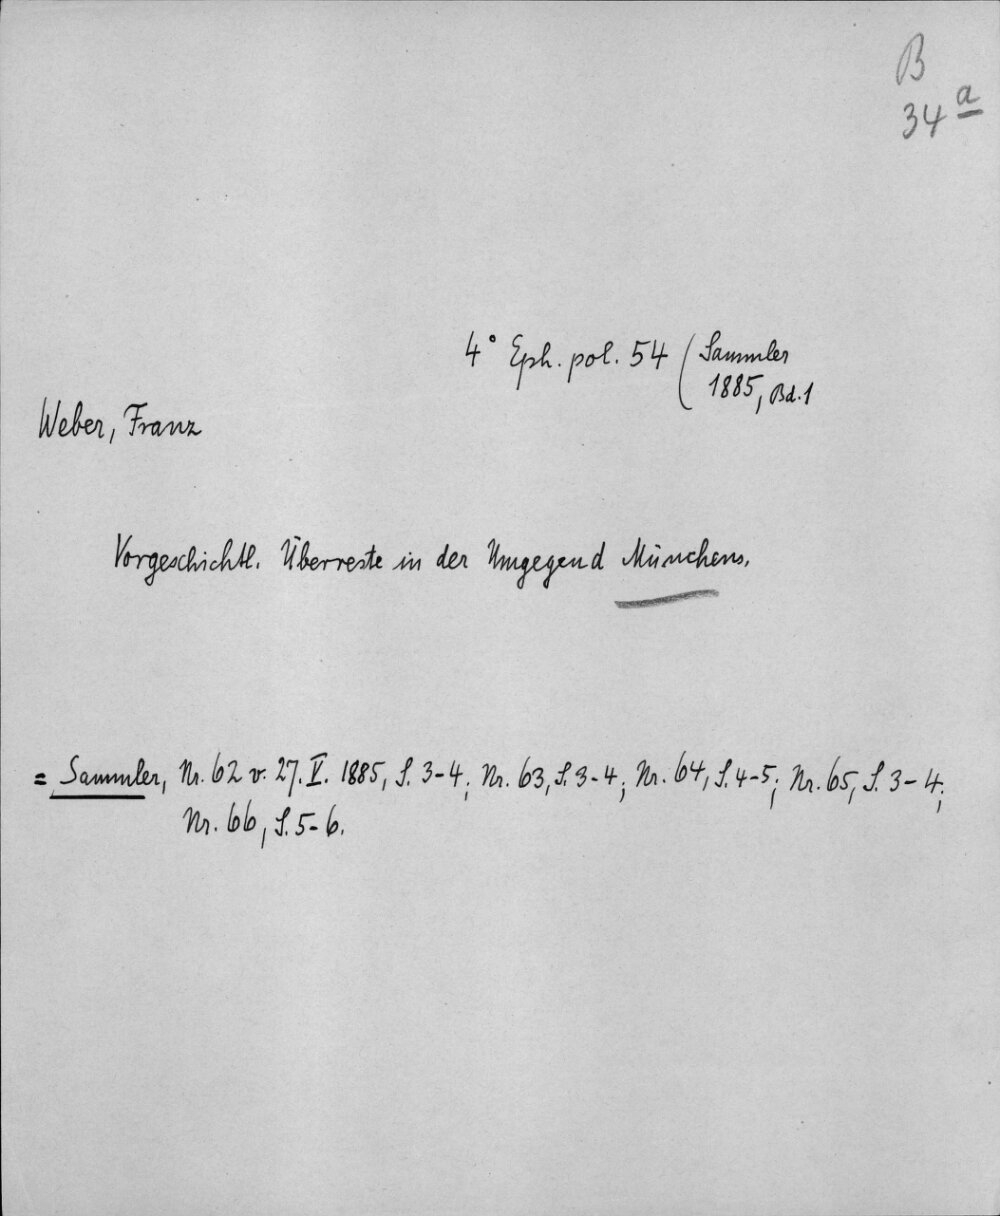 B
34 a
4° Eph. pol. 54 (Sammler
1885, Bd. 1
Weber, Franz
Vorgeschichtl. Überreste in der Umgegend Münchens.
= Sammler, Nr. 62 v. 27. V. 1885, S. 3-4; Nr. 63, S. 3-4; Nr. 64, S. 4-5; Nr. 65, S. 3-4;
Nr. 66, S. 5-6.